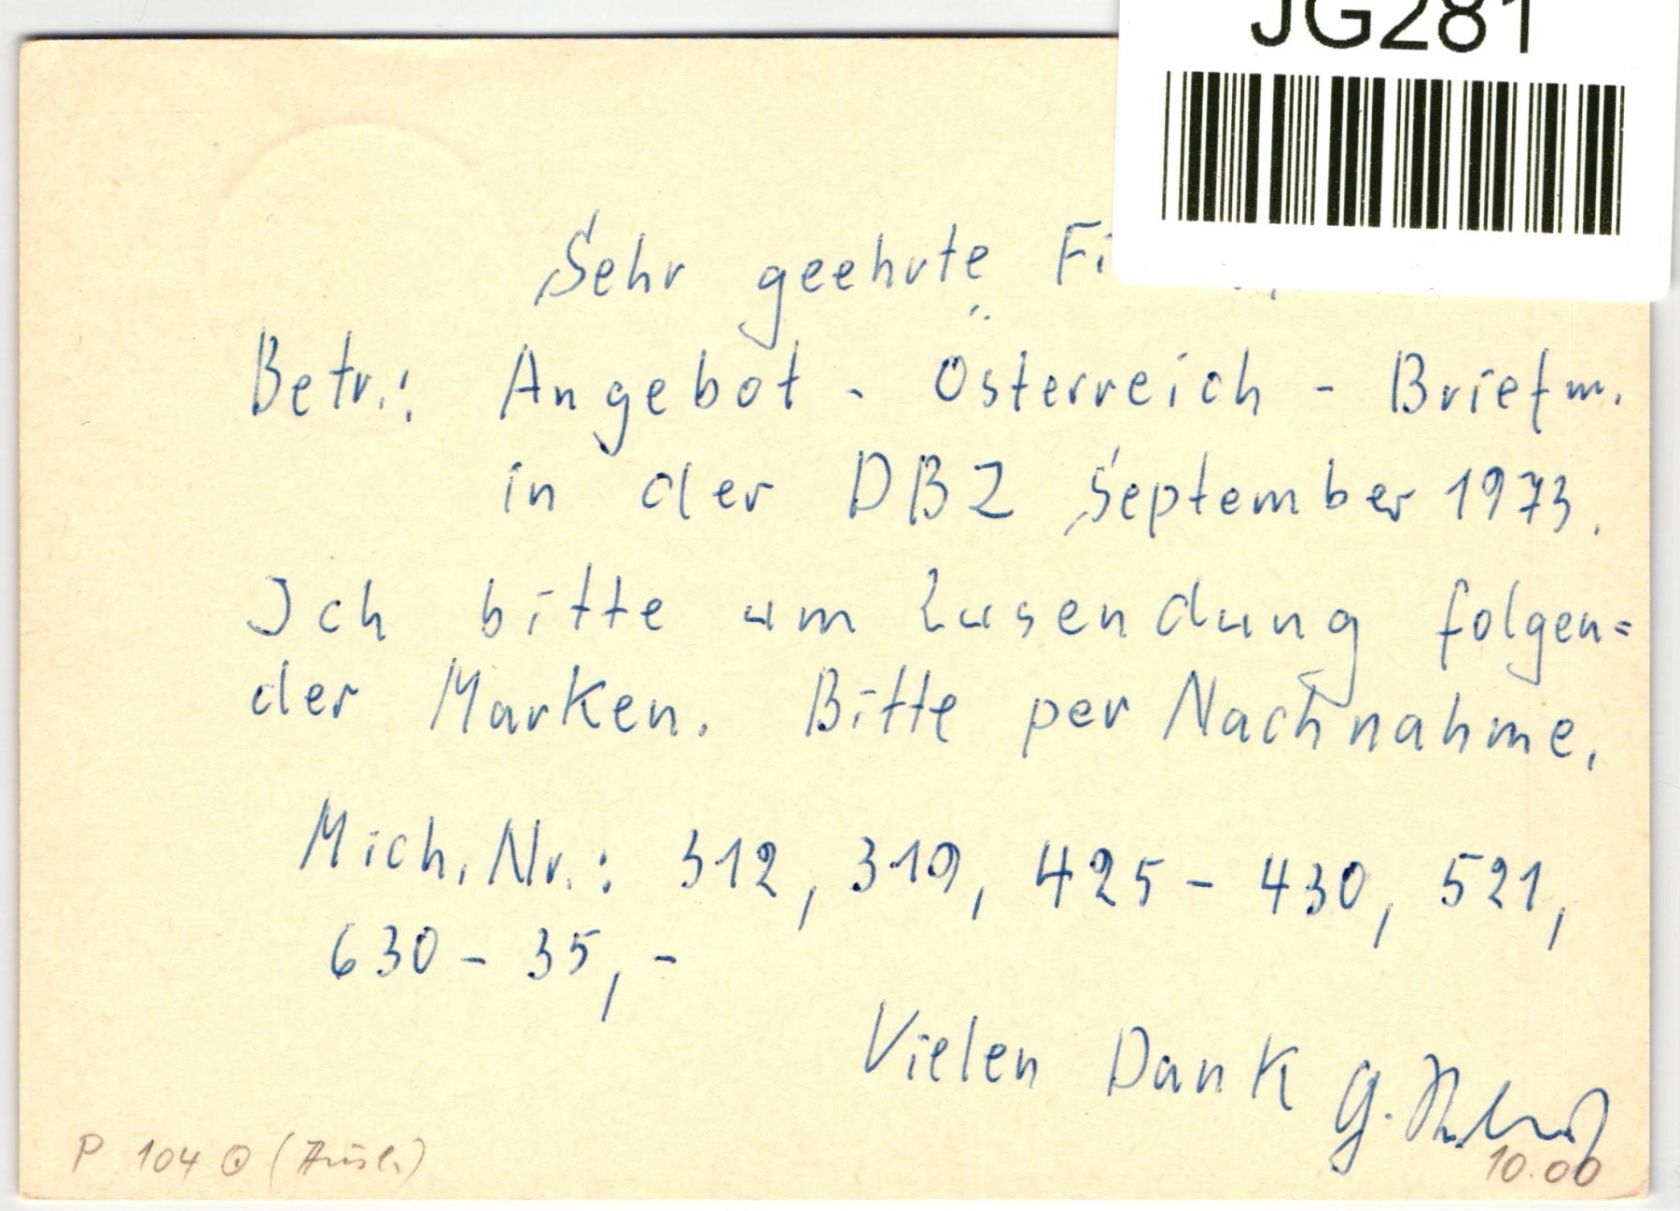 JG281
Sehr geehrte
Betr.: Angebot - Österreich - Briefm.
in der DBZ September 1973.
Ich bitte um Zusendung folgen=
der Marken. Bitte per Nachnahme.
Mich. Nr.: 312, 319, 425 - 430, 521,
630 - 35, -
Vielen Dank G.
P 104 ⊙ (Ausl.)
10.00